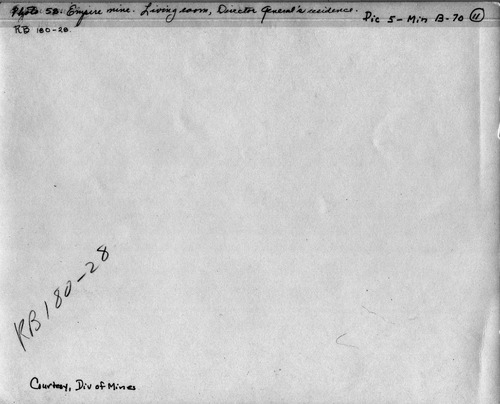 Photo 58. Empire mine. Living room, Director General's residence. Pic 5-Min B-70 11
RB 180-28
RB 180-28
Courtesy, Div of Mines